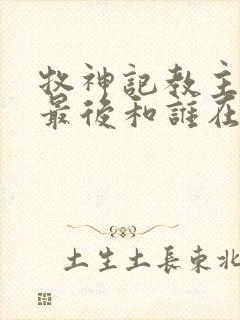 牧神記教主
最後和誰在
土生土長東北